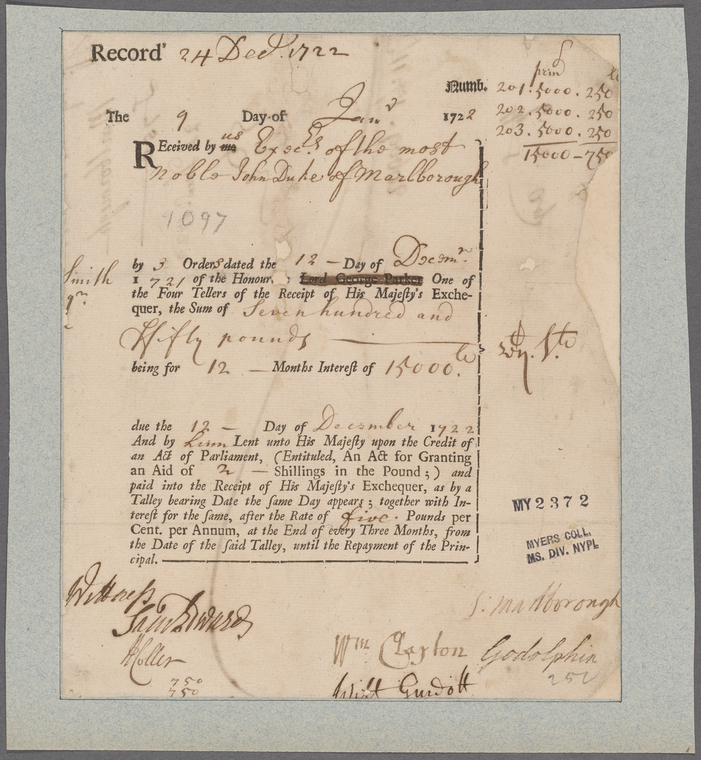 Record' 24 Decr. 1722
prin
Numb. 201. 5000. 250
202. 5000. 250
203. 5000. 250
15000 - 750
The 9 Day of Janr 1722
REceived by me us Execrs of the most
noble John Duke of Marlborough
1097
by 3 Orders dated the 12 - Day of Decemr.
Smith
1721 of the Honour. : Lord George Parker One of
the Four Tellers of the Receipt of His Majesty's Exche-
quer, the Sum of Seven hundred and
ffifty pounds
being for 12 - Months Interest of 15000.
due the 12 - Day of December 1722
And by Lent unto His Majesty upon the Credit of
an Act of Parliament, (Entituled, An Act for Granting
an Aid of 2 - Shillings in the Pound;) and
paid into the Receipt of His Majesty's Exchequer, as by a
Talley bearing Date the same Day appears; together with In-
terest for the same, after the Rate of five. Pounds per
Cent. per Annum, at the End of every Three Months, from
the Date of the said Talley, until the Repayment of the Prin-
cipal.
MY 2372
MYERS COLL.
MS. DIV. NYPL
Wittness
Sam Edwards
S: Marlborough
Wm Clayton Godolphin
252
750
750
Guidott